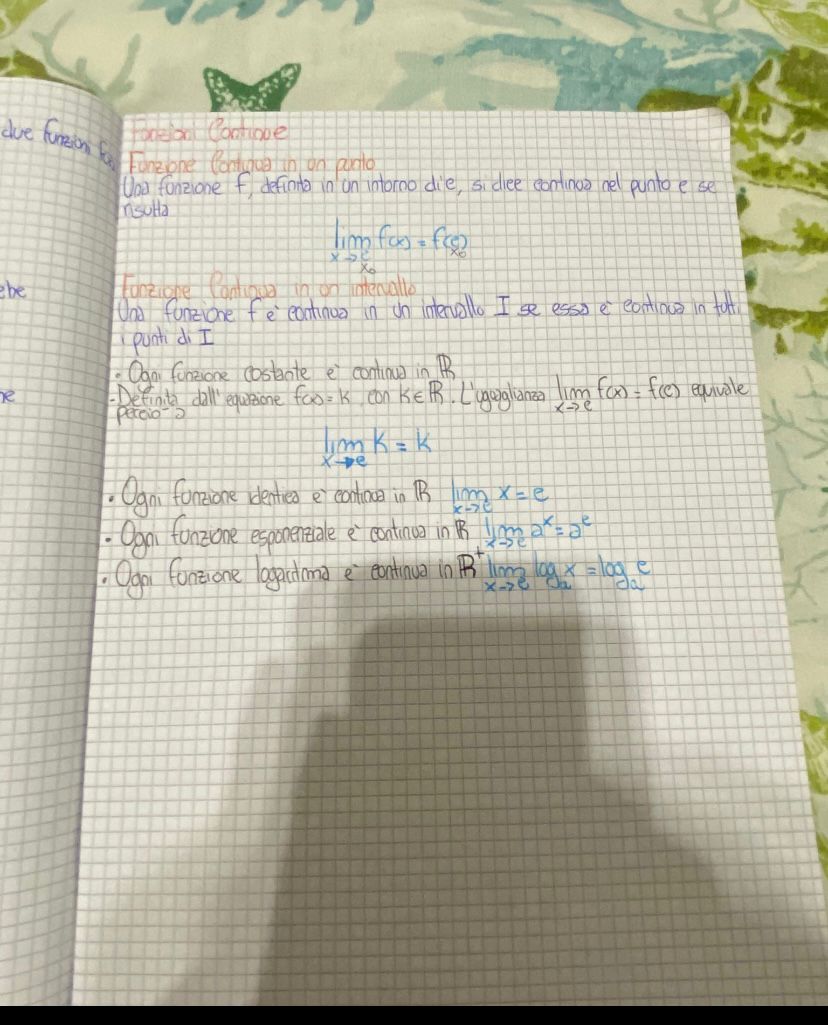 due funzioni
Funzioni Continue
Funzione Continua in un punto
Una funzione f, definita in un intorno di c, si dice continua nel punto c se
risulta
lim f(x) = f(c)
x→c x₀
x₀
Funzione Continua in un intervallo
ebe
Una funzione f è continua in un intervallo I se essa è continua in tutti
i punti di I
• Ogni funzione costante è continua in ℝ
ne
- Definita dall'equazione f(x) = k con k∈ℝ. L'uguaglianza lim f(x) = f(c) equivale
perciò → x→c
lim k = k
x→c
• Ogni funzione identica è continua in ℝ lim x = c
x→c
• Ogni funzione esponenziale è continua in ℝ lim aˣ = aᶜ
x→c
• Ogni funzione logaritmo è continua in ℝ⁺ lim logₐ x = logₐ c
x→c